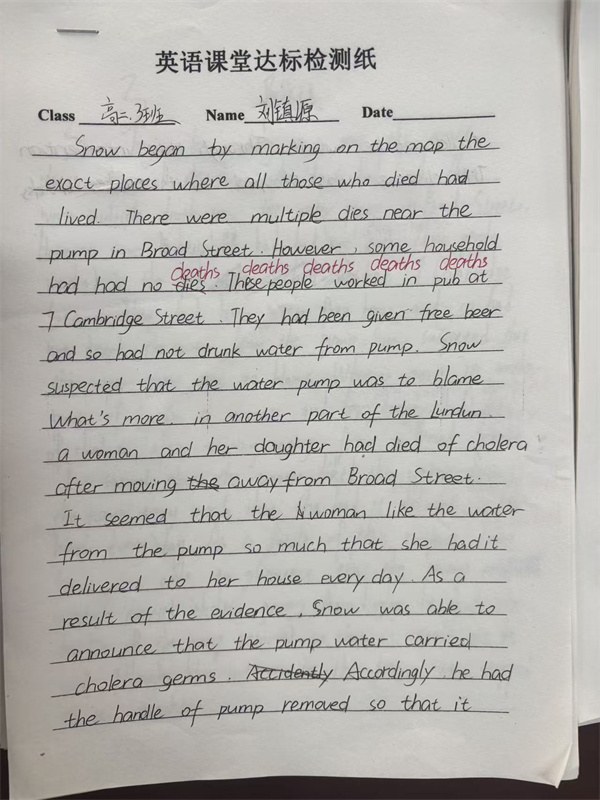 英语课堂达标检测纸
Class 高二.3班 Name 刘镇源 Date
Snow began by marking on the map the
exact places where all those who died had
lived. There were multiple dies near the
pump in Broad Street. However, some household
deaths deaths deaths deaths deaths
had had no dies. These people worked in pub at
7 Cambridge Street. They had been given free beer
and so had not drunk water from pump. Snow
suspected that the water pump was to blame
What's more. in another part of the lundun.
a woman and her daughter had died of cholera
after moving the away from Broad Street.
It seemed that the woman like the water
from the pump so much that she had it
delivered to her house every day. As a
result of the evidence, Snow was able to
announce that the pump water carried
cholera germs. Accidently Accordingly. he had
the handle of pump removed so that it